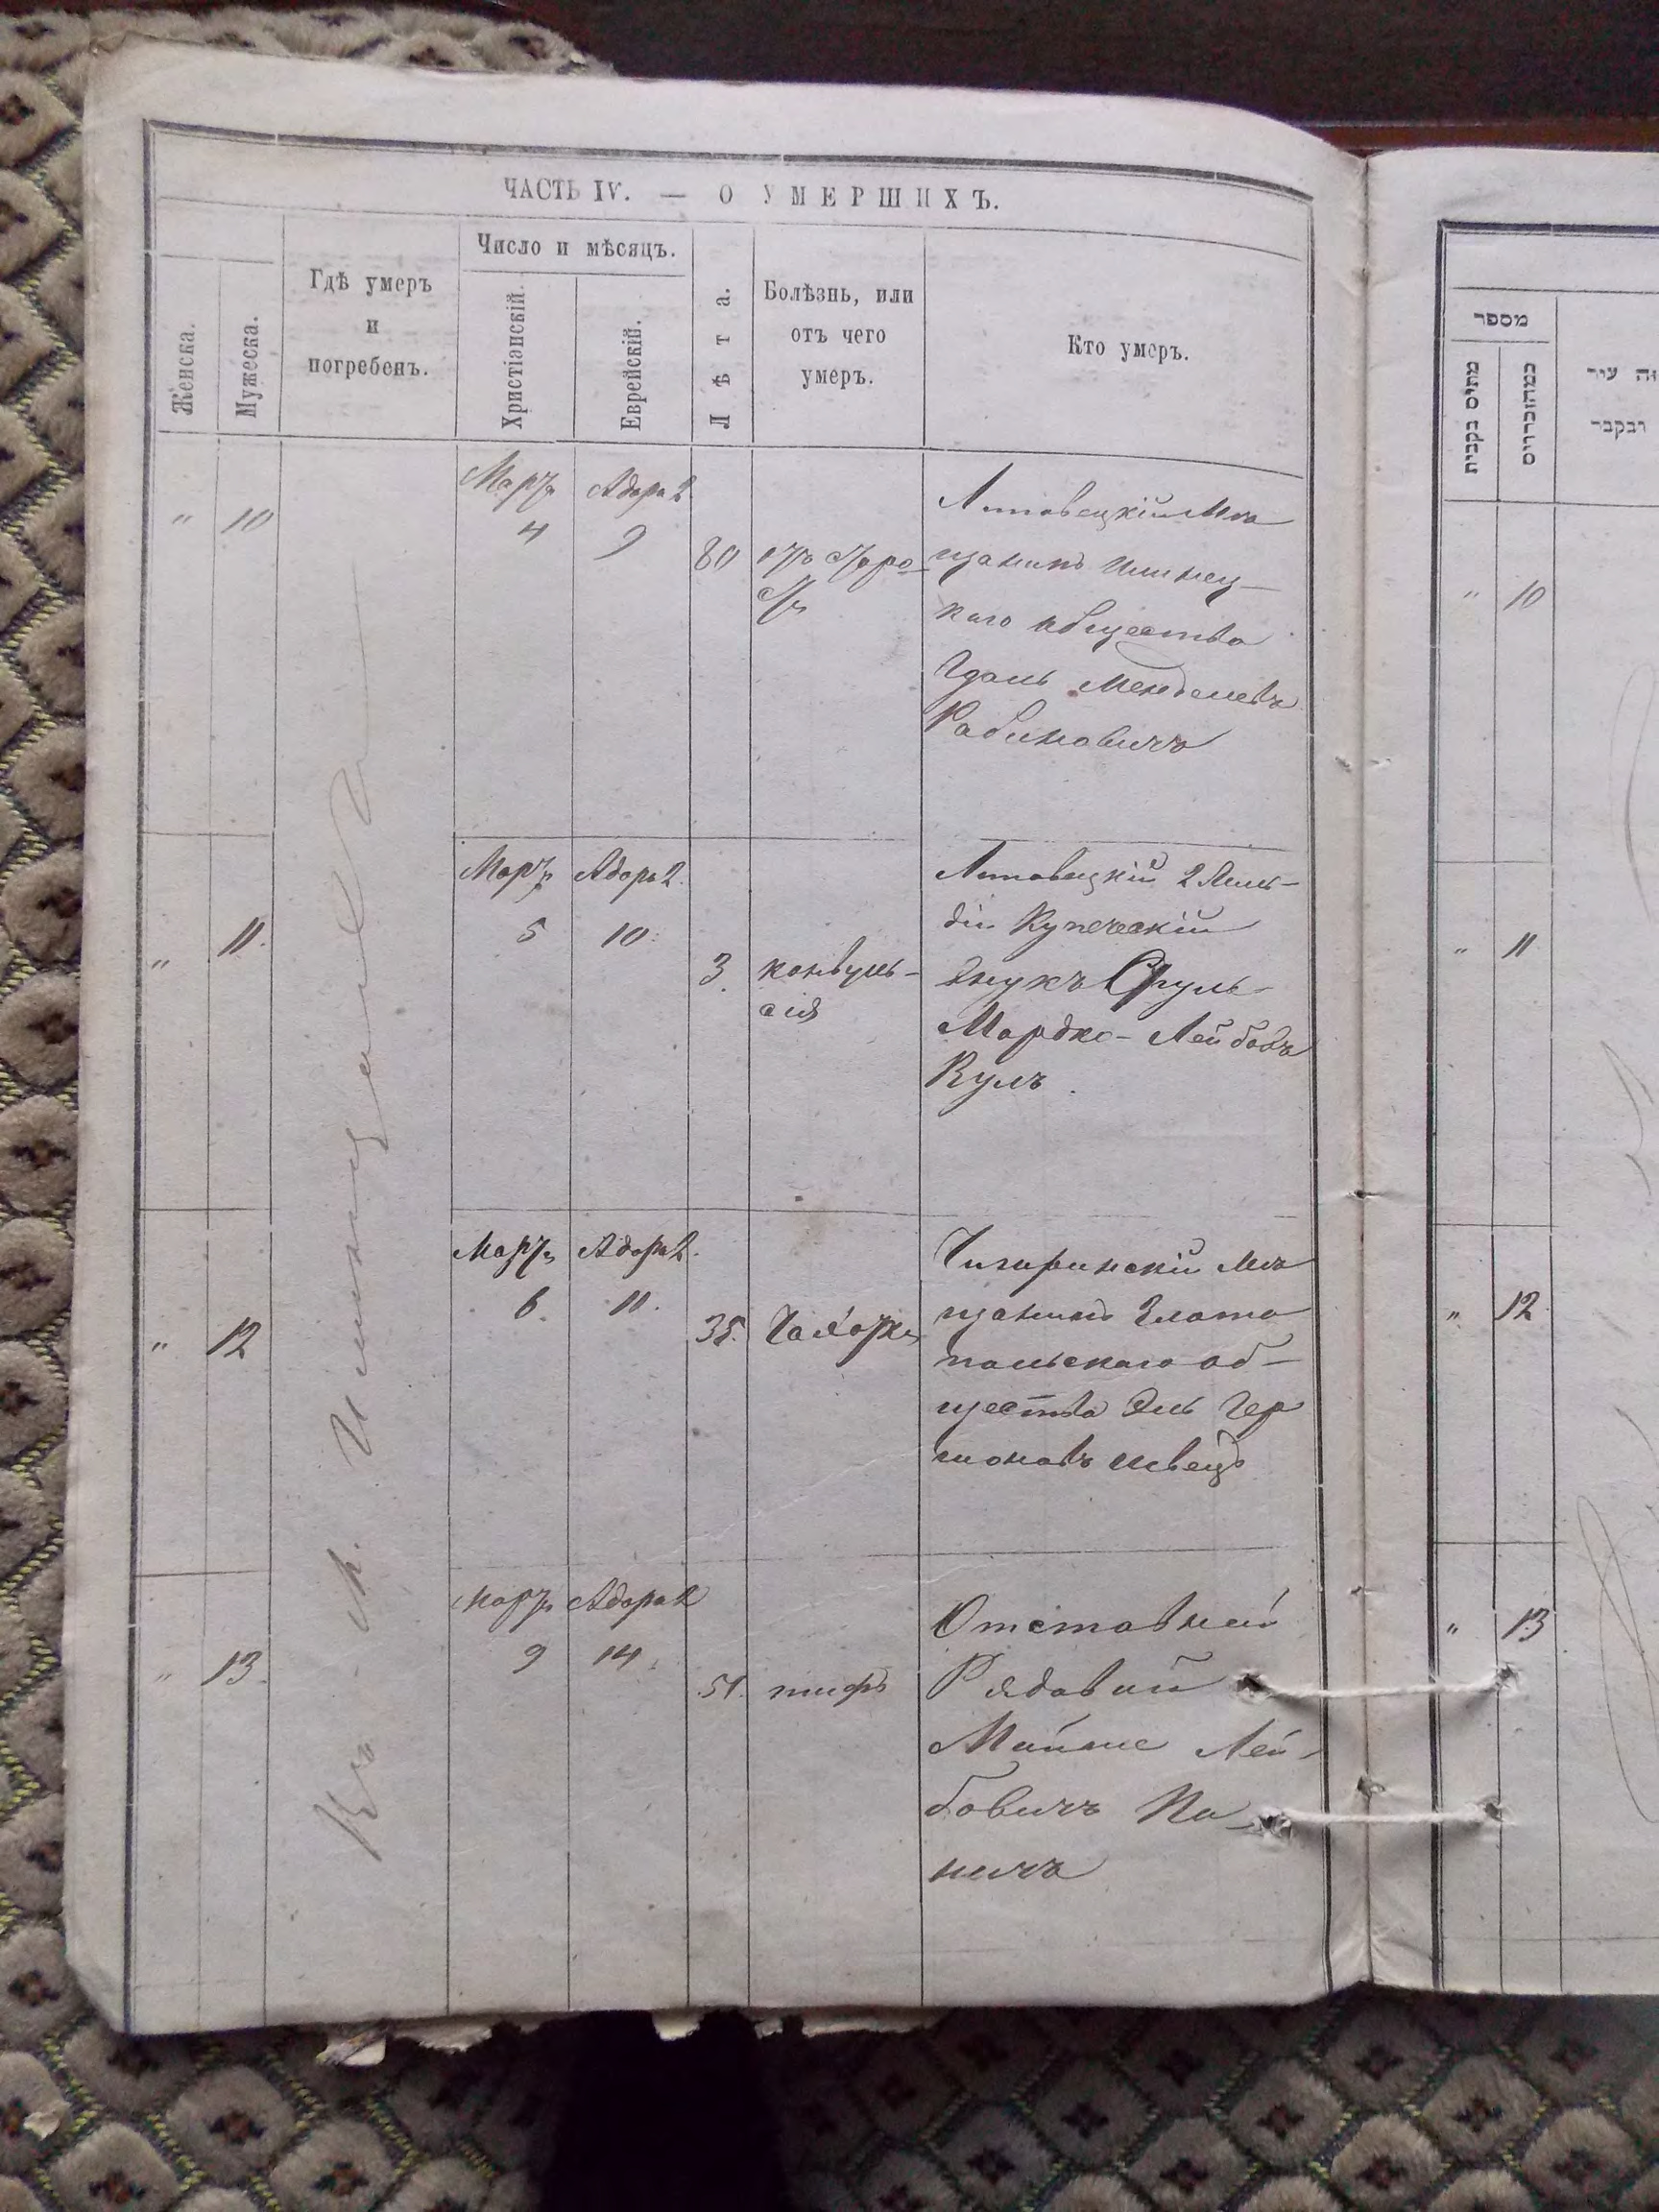 ЧАСТЬ IV. — О УМЕРШИХЪ.
Женска.
Мужеска.
Гдѣ умеръ
и
погребенъ.
Число и мѣсяцъ.
Христіанскій.
Еврейскій.
Лѣта.
Болѣзнь, или
отъ чего
умеръ.
Кто умеръ.
Въ м.
" 10
Марта
4
Адора 2
9
80
отъ старо-
сти
Липовецкій Мѣ
щанинъ Илинец-
каго общества
Гдаль Менделевъ
Рабиновичъ
" 11.
Марта
5
Адора 2.
10.
3.
конвуль-
сія
Липовецкій 2 Гиль-
діи Купеческій
внукъ Сруль
Мордко-Лейбовъ
Кулъ.
" 12
Марта
6.
Адора 2.
11.
35.
Чахотка
Чигиринскій Мѣ
щанинъ Злато
польскаго об-
щества Эль Гер
шоновъ Швецъ
" 13.
Марта
9
Адора 2
14.
51.
тифъ
Отставной
Рядовой
Лей-
бовичъ
מספר
" 10
" 11
" 12
" 13